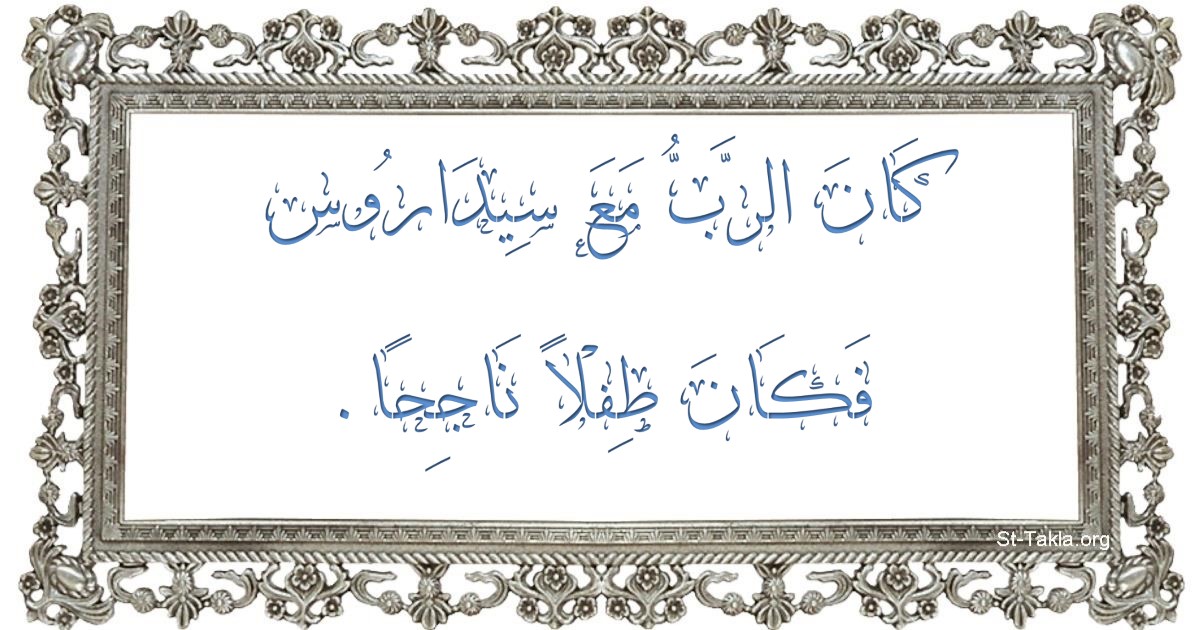 كَانَ الرَّبُّ مَعَ سِيْدَارُوس
فَكَانَ طِفْلاً نَاجِحًا .
St-Takla.org